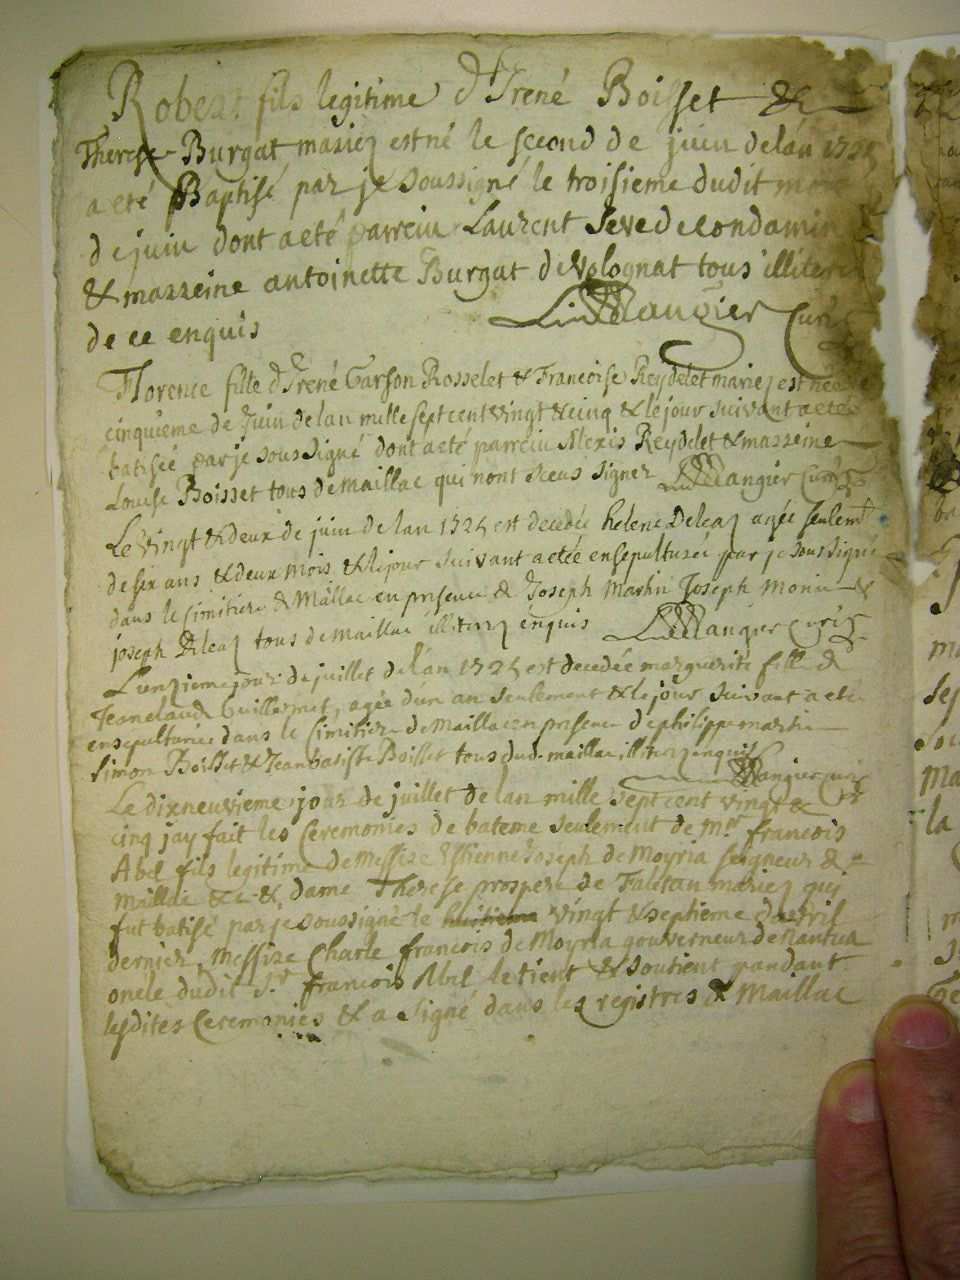 Robert fils legitime d'Irené Boisset &
Therese Burgat mariez est né le second de juin de lan 1725
a eté Baptisé par je soussigné le troisieme dudit mois
de juin dont a eté parrein Laurent Seve de condamin
& marreine antoinette Burgat de Volognat tous illiterez
de ce enquis Mangier Curé
Florence fille d'Irené Garson Rosselet & Francoise Reydelet mariez est née le
cinquieme de Juin de lan mille sept cent vingt & cinq & le jour suivant a eté
batisée par je sous signé dont a eté parrein Alexis Reydelet & marreine
Louise Boisset tous de maillac qui nont sceus signer Mangier Curé
Le vingt & deux de juin de lan 1725 est decedée helene Deleaz agée seulemt
de six ans & deux mois & le jour suivant a etée ensepulturée par je soussigné
dans le Cimitiere de Maillac en presence de Joseph Martin Joseph Monin &
joseph Deleaz tous de maillac illiterez enquis Mangier curé
L'onzieme jour de juillet de lan 1725 est decedée marguerite fille de
Jeanclaude Guillermet, agée d'un an seulement & le jour suivant a eté
ensepulturée dans le Cimitiere de Maillac en presence de philippe martin
Simon Boisset & Jean batiste Boisset tous dud. maillac illiterez enquis
Mangier curé
Le dixneuvieme jour de juillet de lan mille sept cent vingt &
cinq jay fait les Ceremonies de bateme seulement de Mre francois
Abel fils legitime de Messire Estienne Joseph de Moyria seigneur de
Maillac &c & dame Therese prospere de mariez qui
fut batisé par je soussigné le vingt & septieme d'avril
dernier, Messire Charle francois de Moyria gouverneur de Nantua
oncle dudit Sr francois Abel le tient & soutient pandant
lesdites Ceremonies & a signé dans les registres de Maillac